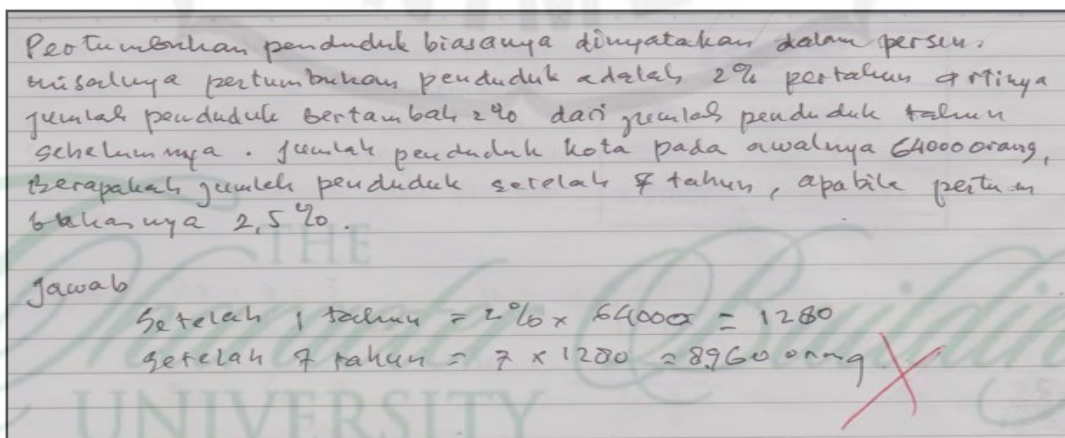 Pertumbuhan penduduk biasanya dinyatakan dalam persen.
misalnya pertumbuhan penduduk adalah 2% pertahun artinya
jumlah penduduk bertambah 2% dari jumlah penduduk tahun
sebelumnya. jumlah penduduk kota pada awalnya 64000 orang,
Berapakah jumlah penduduk setelah 7 tahun, apabila pertum
buhannya 2,5%.
Jawab
Setelah 1 tahun = 2% x 64000 = 1280
Setelah 7 tahun = 7 x 1280 = 8960 orang
THE
UNIVERSITY